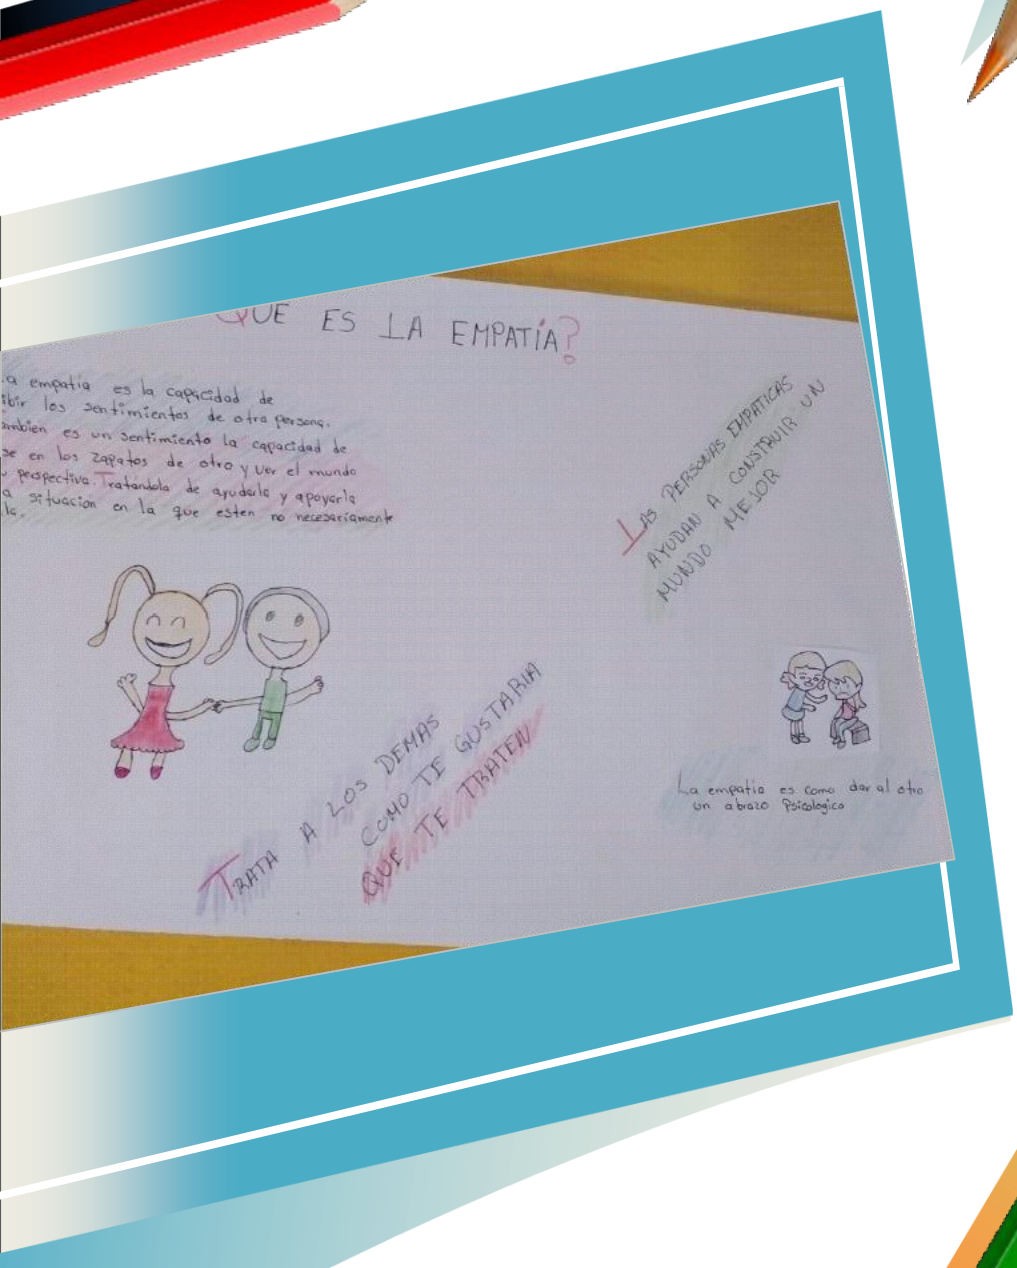 QUE ES LA EMPATÍA?
a empatia es la capacidad de
ibir los sentimientos de otra persona.
ambien es un sentimiento la capacidad de
se en los zapatos de otro y ver el mundo
perspectiva. Tratandola de ayudarla y apoyarla
a situacion en la que esten no necesariamente
la.
LAS PERSONAS EMPATICAS
AYUDAN A CONSTRUIR UN
MUNDO MEJOR
TRATA A LOS DEMAS
COMO TE GUSTARIA
QUE TE TRATEN
La empatia es como dar al otro
un abrazo Psicologico